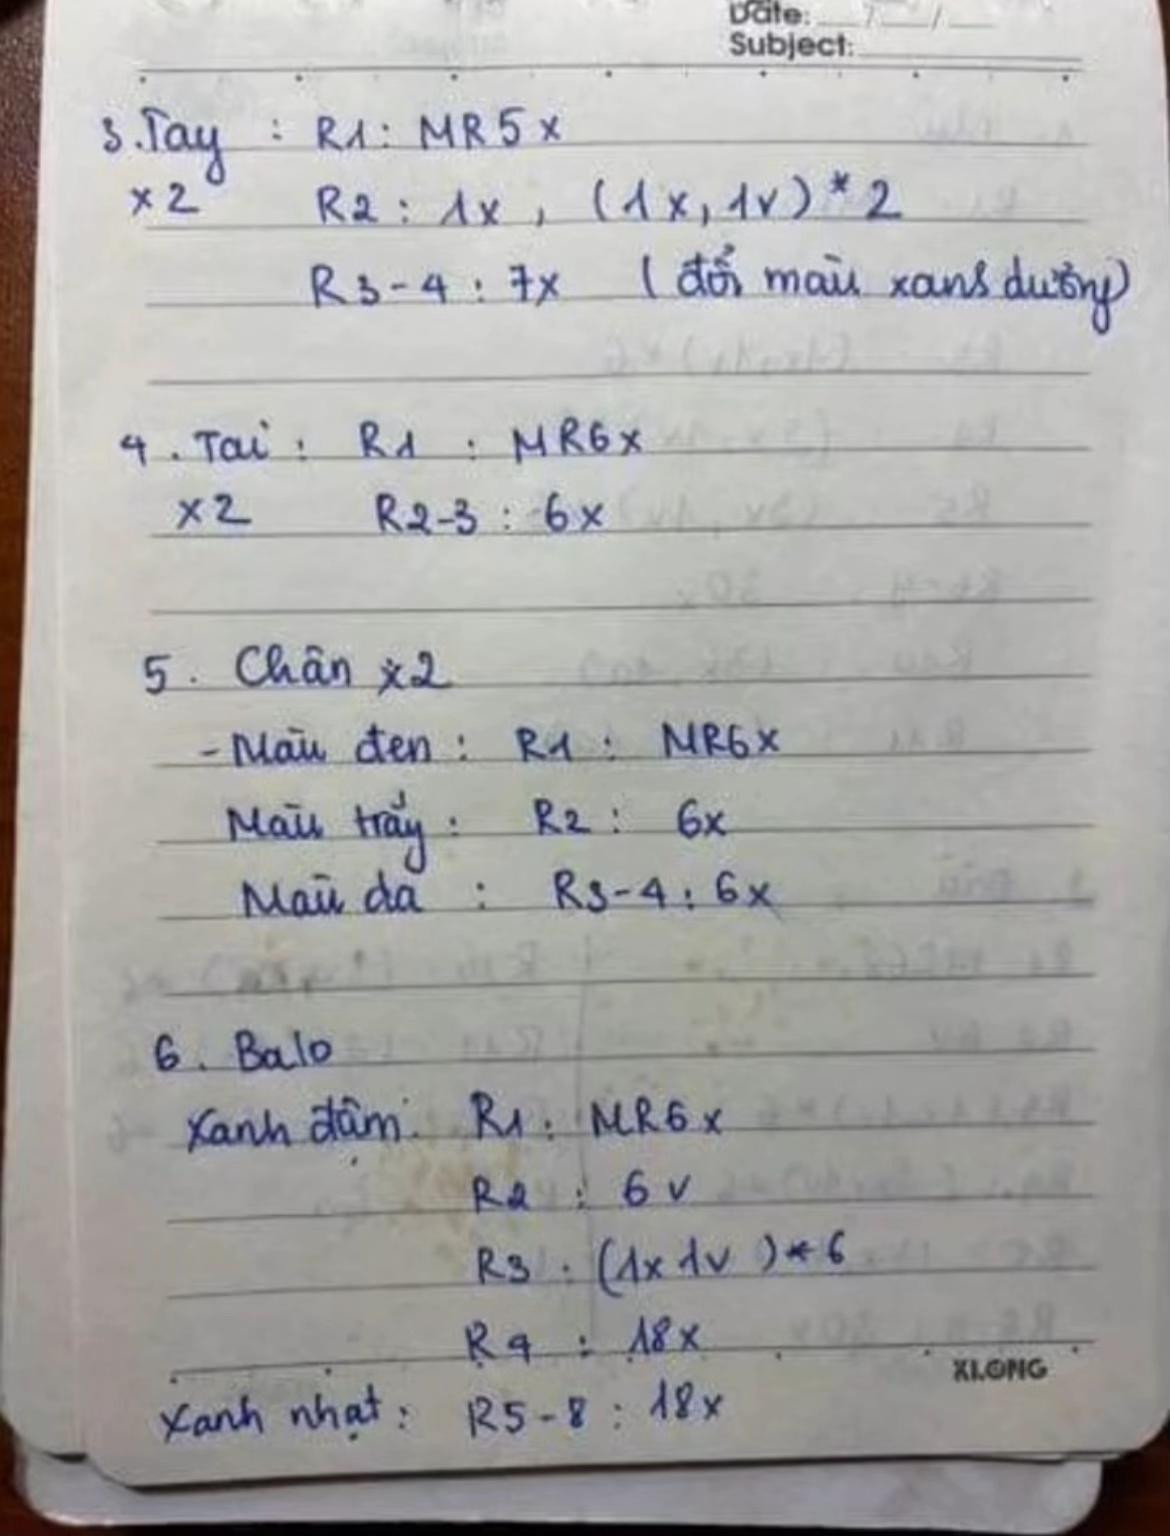 Date: __/__/__
Subject:
3. Tay : R1: MR5x
x2 R2 : 1x, (1x, 1v) * 2
R3-4 : 7x (đổi màu xanh dương)
4. Tai : R1 : MR6x
x2 R2-3 : 6x
5. Chân x2
- Màu đen : R1 : MR6x
Màu trắng : R2 : 6x
Màu da : R3-4 : 6x
6. Balo
Xanh đậm : R1 : MR6x
R2 : 6v
R3 : (1x 1v) * 6
R4 : 18x
XLONG
Xanh nhạt : R5-8 : 18x